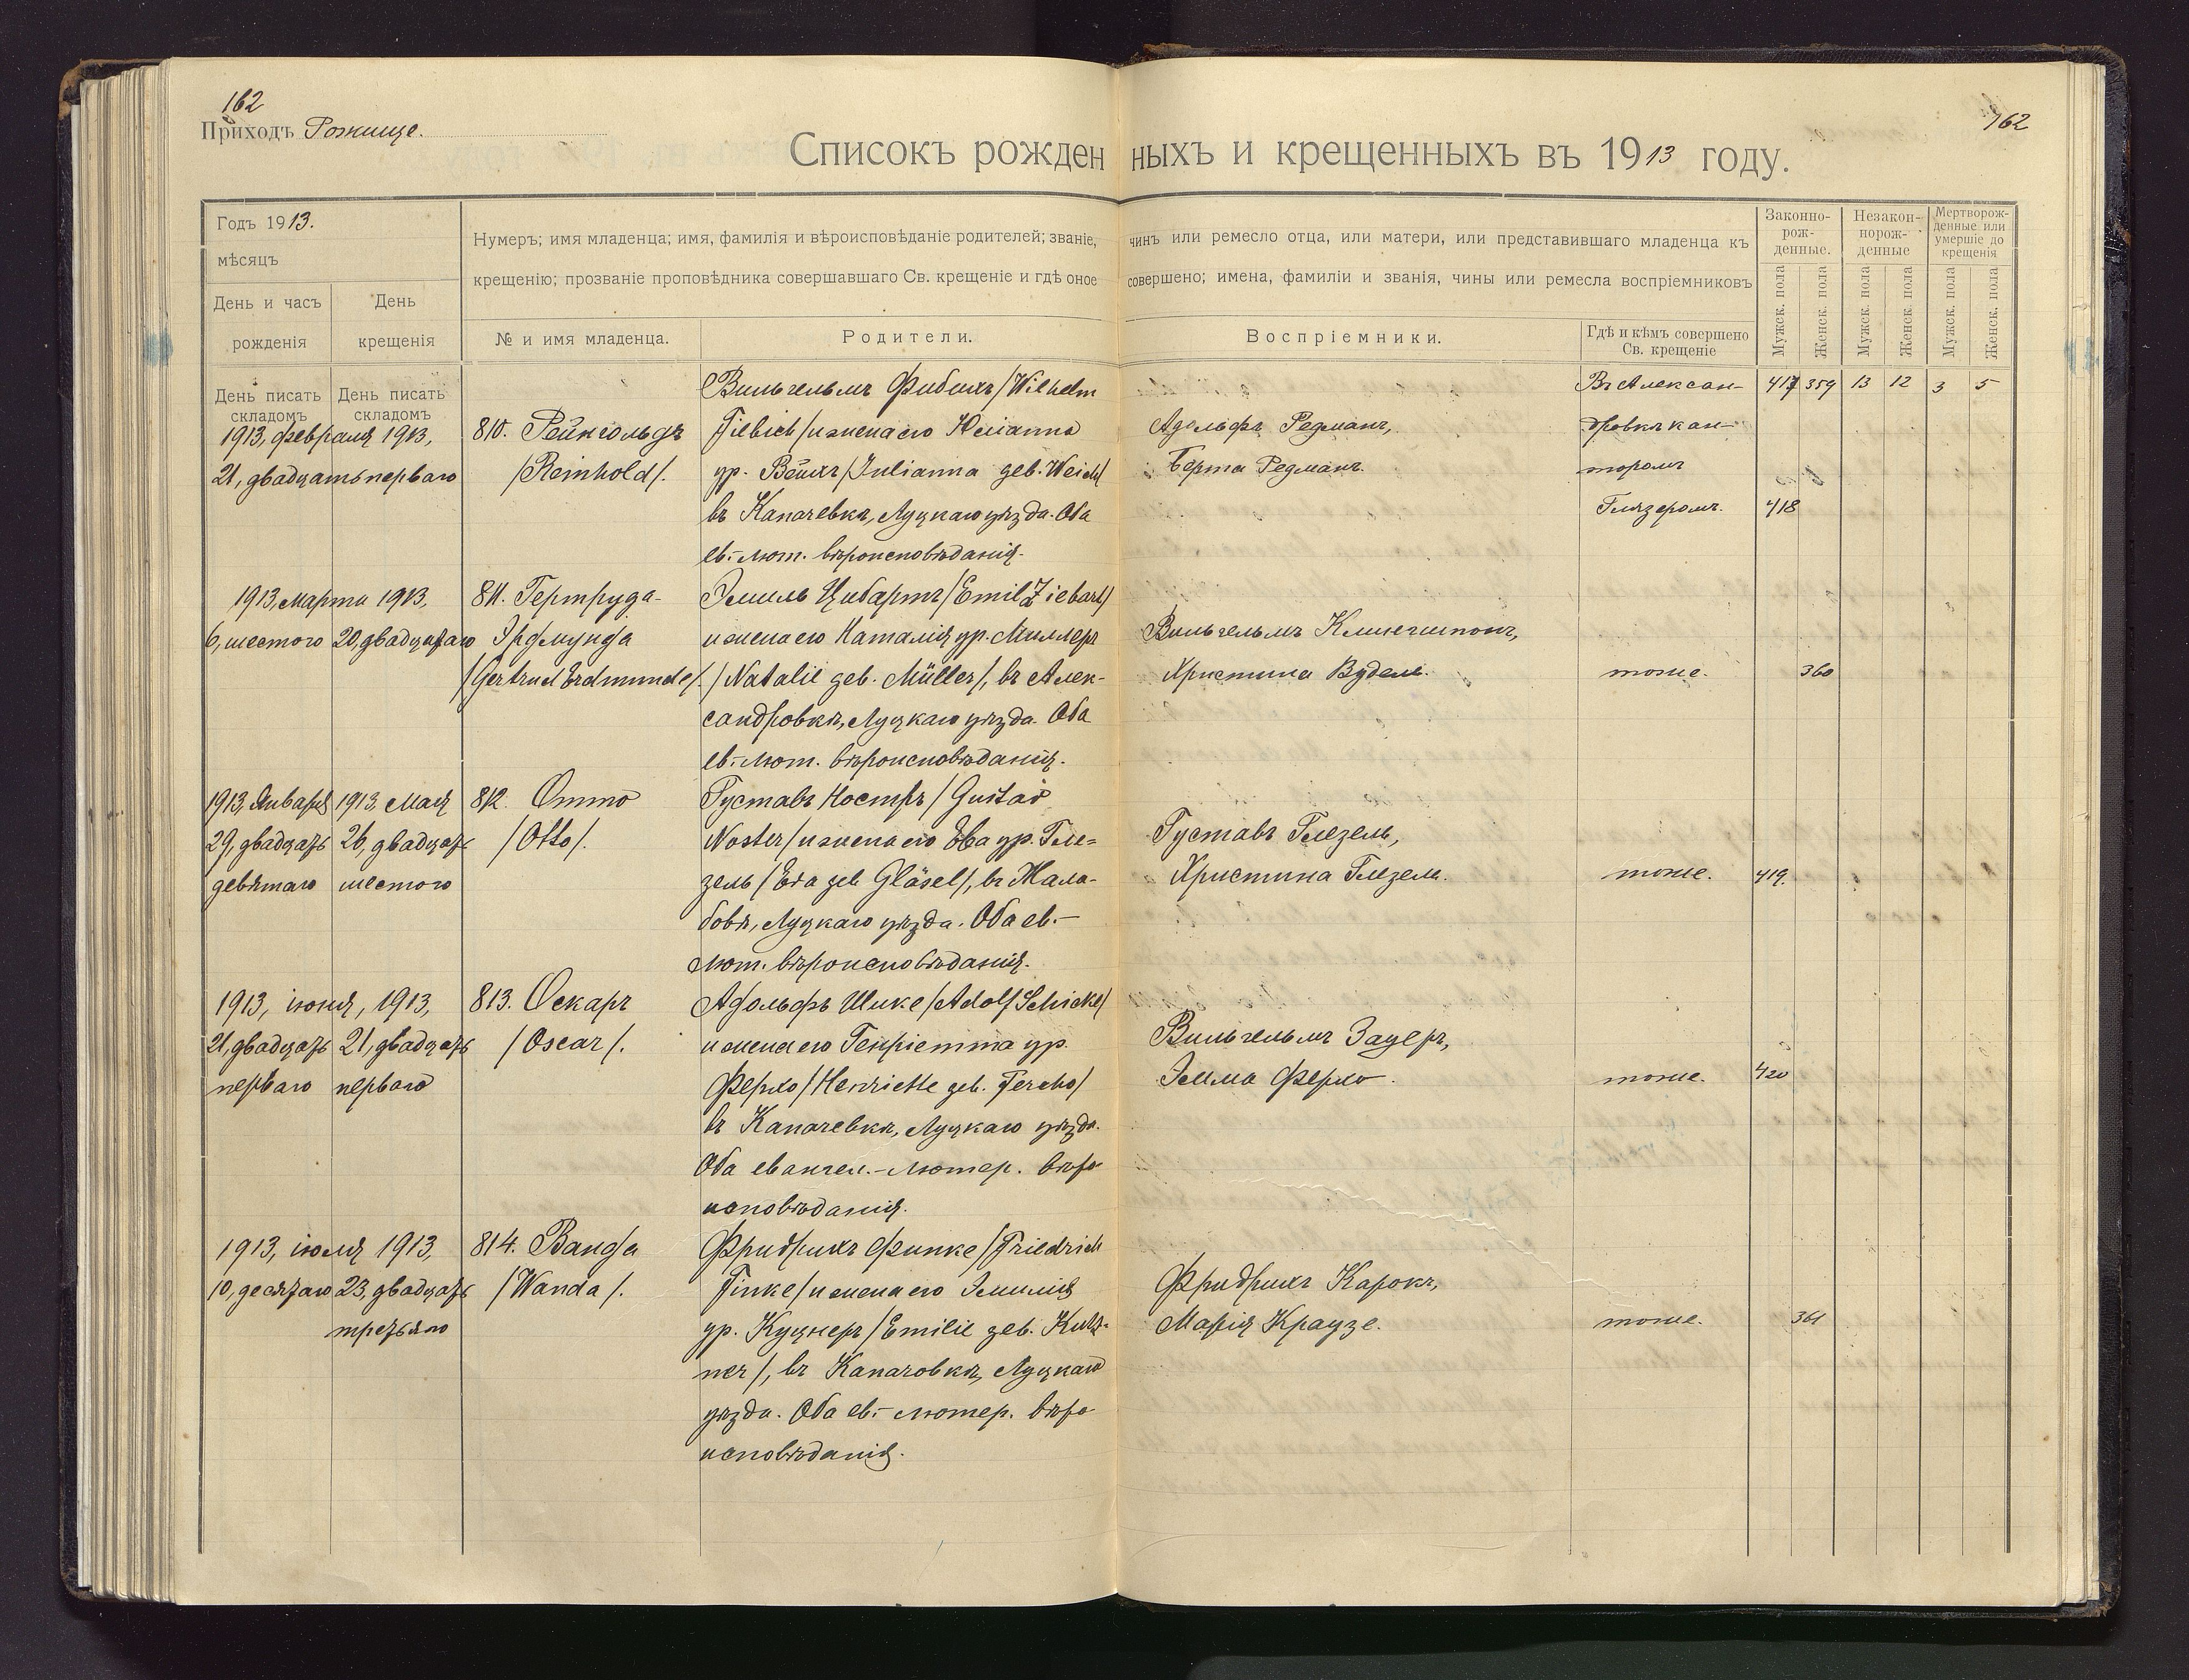 162
Приходъ Рожище.
162
Списокъ рожденныхъ и крещенныхъ въ 1913 году.
Годъ 1913.
мѣсяцъ
День и часъ рожденія
День крещенія
Нумеръ; имя младенца; имя, фамилія и вѣроисповѣданіе родителей; званіе, чинъ или ремесло отца, или матери, или представившаго младенца къ
крещенію; прозваніе проповѣдника совершавшаго Св. крещеніе и гдѣ оное совершено; имена, фамиліи и званія, чины или ремесла воспріемниковъ
№ и имя младенца.
Родители.
Воспріемники.
Гдѣ и кѣмъ совершено
Св. крещеніе
Законно-
рож-
денные.
Незакон-
норож-
денные
Мертворож-
денные или
умершіе до
крещенія
Мужск. пола
Женск. пола
Мужск. пола
Женск. пола
Мужск. пола
Женск. пола
День писать
складомъ
День писать
складомъ
417 359 13 12 3 5
1913, февраля 1913,
21, двадцать перваго
810. Рейнгольдъ
/Reinhold/.
Вильгельмъ Фибихъ /Wilhelm
Fiebich/ и жена его Юлианна
ур. Вейхъ /Julianna geb. Weich/
въ Капачевкѣ, Луцкаго уѣзда. Оба
ев.-лют. вѣроисповѣданія.
Адольфъ Редманъ,
Берта Редманъ.
Въ Алексан-
дровкѣ кан-
торомъ
Глязеромъ.
418
1913, марта 1913,
6, шестого 20, двадцатаго
811. Гертруда-
Эрдмунда
/Gertrud Erdmunde/.
Эмиль Цибартъ /Emil Ziebart/
и жена его Наталія ур. Миллеръ
/Natalie geb. Müller/, въ Алек-
сандровкѣ, Луцкаго уѣзда. Оба
ев.-лют. вѣроисповѣданія.
Вильгельмъ Клингшпонъ,
Христина Вудель.
тоже.
360
1913, Января 1913, Мая
29, двадцать 26, двадцать
девятаго шестого
812. Отто
/Otto/.
Густавъ Ностръ /Gustav
Noster/ и жена его Ева ур. Гле-
зель /Eva geb. Gläsel/, въ Жала-
бовѣ, Луцкаго уѣзда. Оба ев.-
лют. вѣроисповѣданія.
Густавъ Глезель,
Христина Глезель.
тоже.
419.
1913, іюня, 1913,
21, двадцать 21, двадцать
перваго перваго
813. Оскаръ
/Oscar/.
Адольфъ Шике /Adolf Schicke/
и жена его Генріетта ур.
Ферхо /Henriette geb. Fercho/
въ Капачевкѣ, Луцкаго уѣзда.
Оба евангел.-лютер. вѣро-
исповѣданія.
Вильгельмъ Зауеръ,
Эмма Ферхо.
тоже.
420
1913, іюля 1913,
10, десятаго 23, двадцать
третьяго
814. Ванда
/Wanda/.
Фридрихъ Финке /Friedrich
Finke/ и жена его Эмилія
ур. Куцнеръ /Emilie geb. Kutz-
ner/, въ Капачовкѣ, Луцкаго
уѣзда. Оба ев.-лютер. вѣро-
исповѣданія.
Фридрихъ Карокъ,
Марія Краузе.
тоже.
361